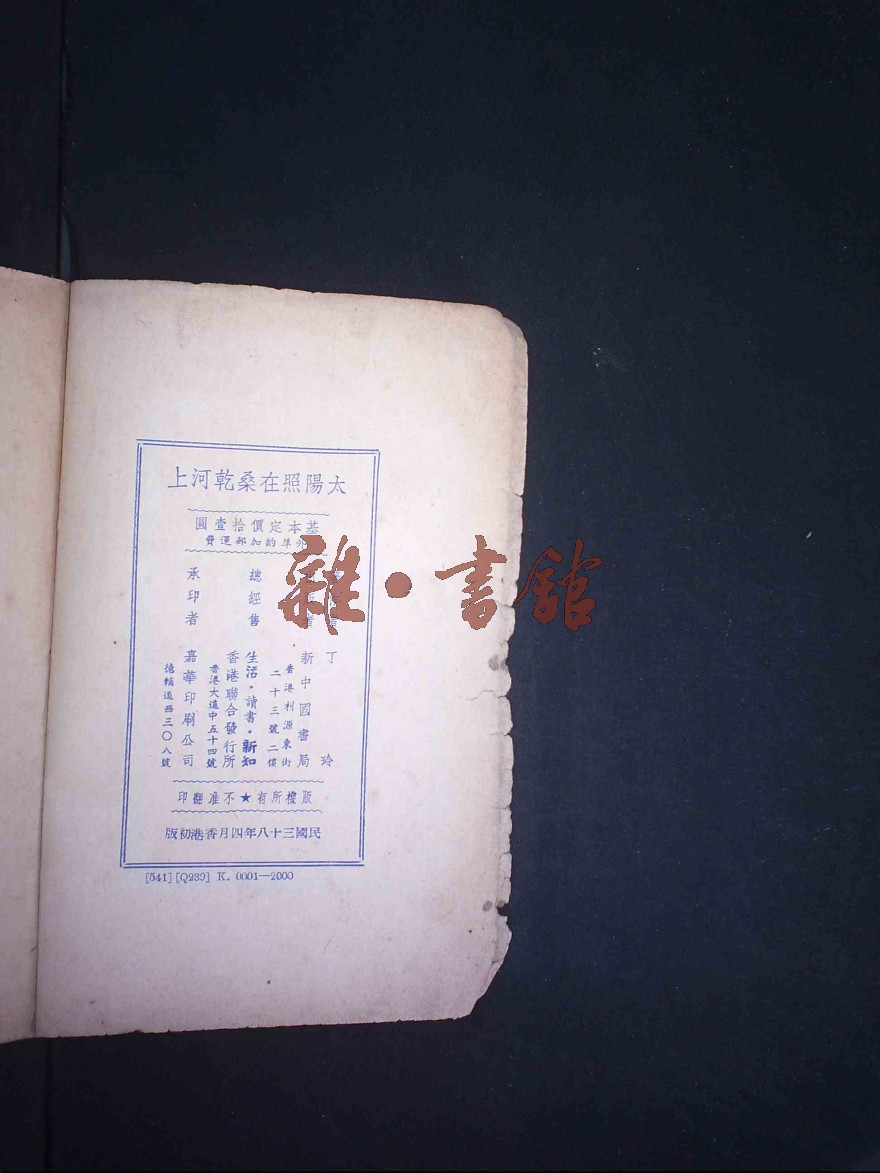 太陽照在桑乾河上
基本定價拾壹圓
外埠酌加郵運費
者
丁玲
者
新中國書局
香港利源東街
二十三號二樓
總經售
生活·讀書·新知
香港聯合發行所
香港大道中五十四號
承印者
嘉華印刷公司
德輔道西三〇八號
版權所有★不准翻印
民國三十八年四月香港初版
[541] [Q289] K. 0001—2000
雜·書館